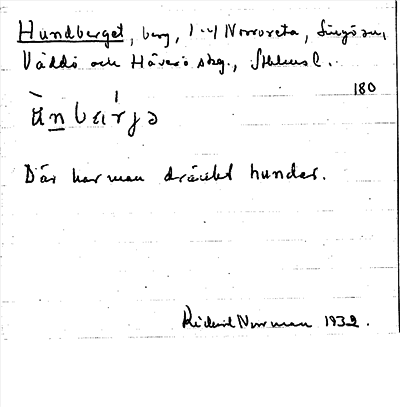 Hundberget, berg, i Norrveta, Singö sn,
Väddö och Häverö skg., Sthlms l.
180
Där har man dränkt hundar.
Richard Norrman 1932.